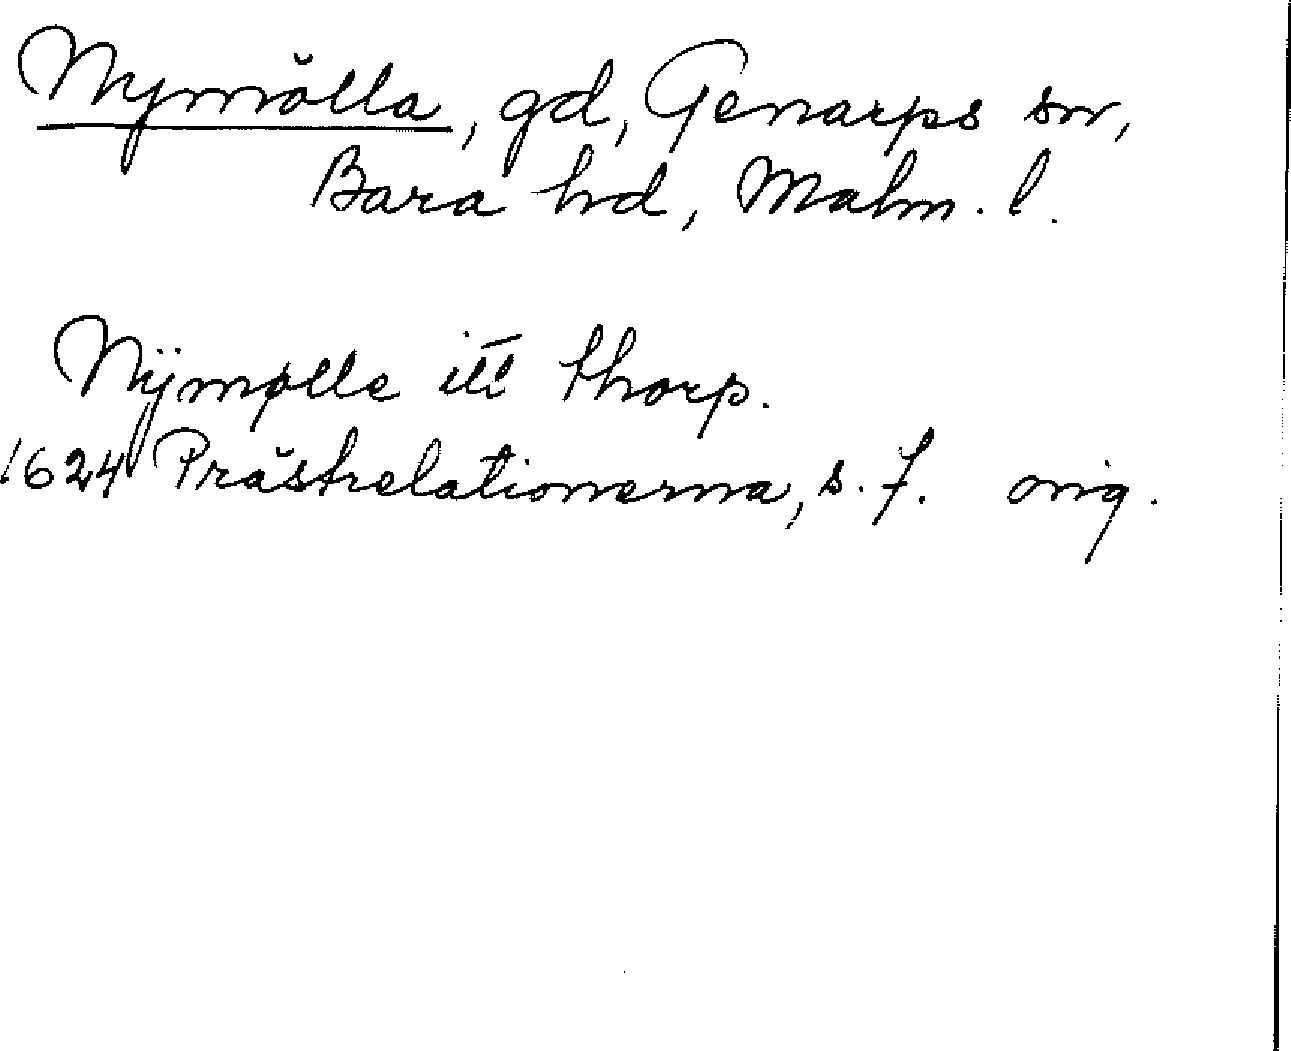 Nymölla, gd, Genarps sn,
Bara hd, Malm. l.
Nÿmølle itt thorp.
1624 Prästrelationerna, s. 7. orig.